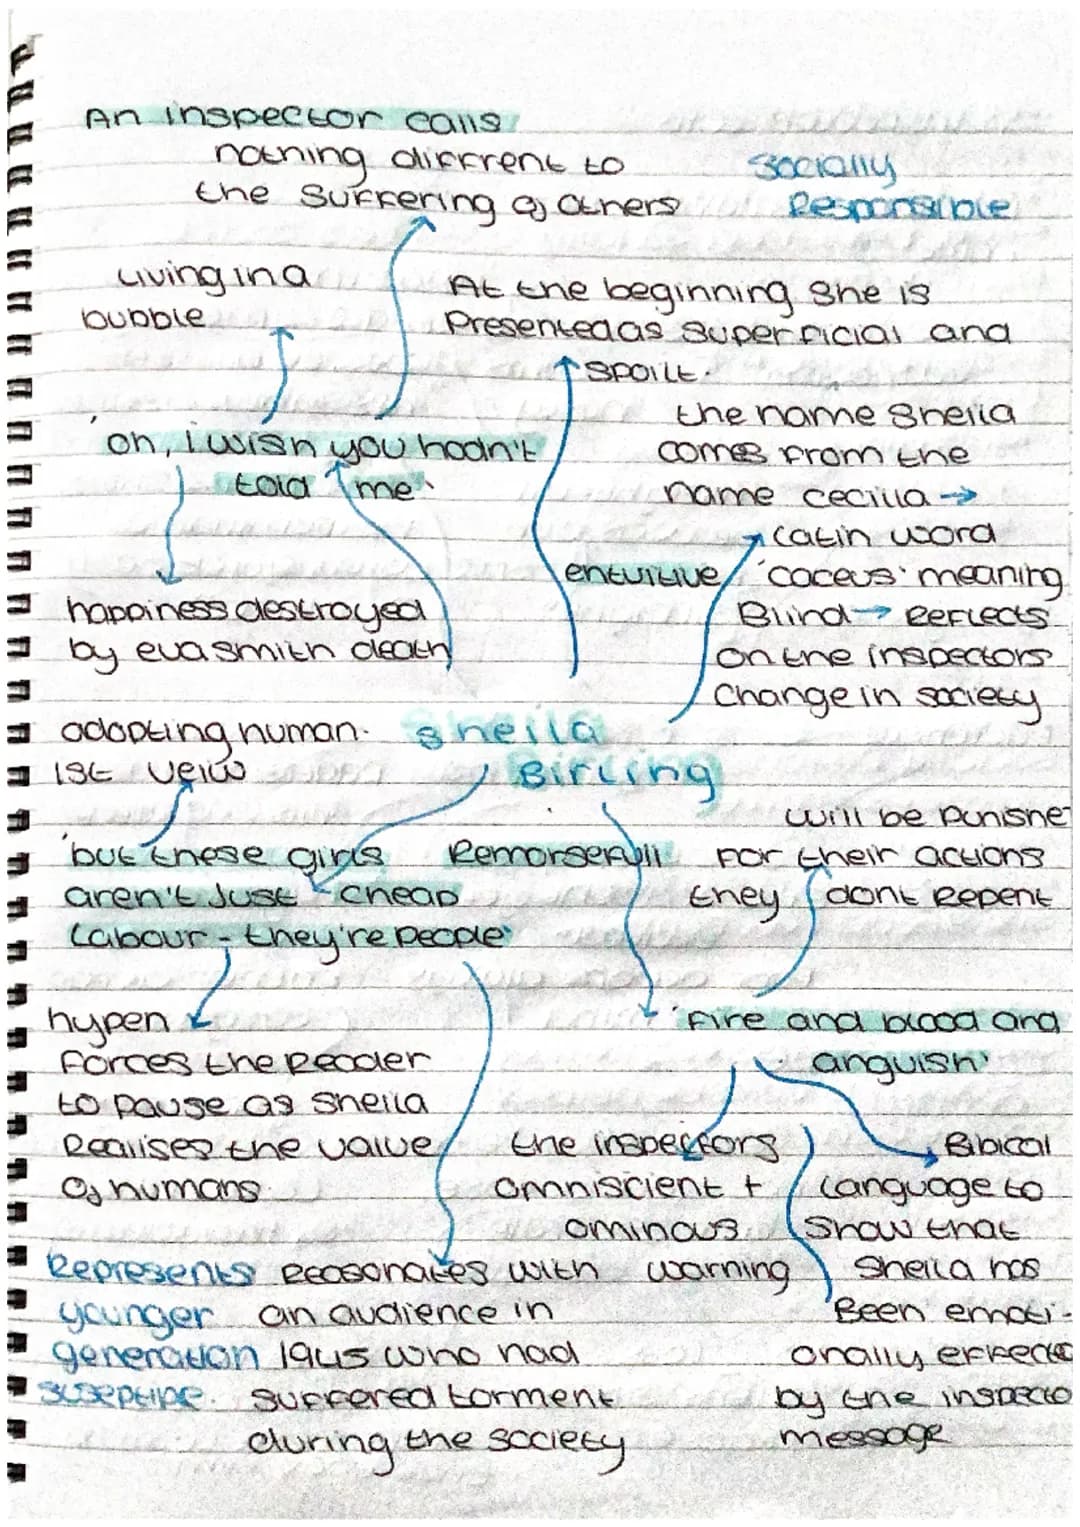 An inspector calls
nothing diffrent to
the suffering of others
Socially
Responsible
Living in a
bubble
At the beginning she is
Presented as superficial and
spoilt.
'oh, i wish you hadn't
told me'
the name sheila
comes from the
name cecilia →
Latin word
'caceus' meaning
Blind → Reflects
on the inspectors
change in society
entuitive
happiness destroyed
by eva smith death
Sheila
Birling
adopting human-
ist veiw
'but these girls
aren't Just cheap
Labour - they're people'
Remorsefull
will be punishe
For their actions
they dont Repent
hypen
Forces the Reader
to pause as sheila
Realises the value
of humans.
'Fire and blood and
anguish'
the inspectors
omniscient +
ominous
warning
Bibical
Language to
Show that
Sheila has
Been emoti-
onally effecte
by the inspecto
message
Represents
younger
generation
suseptipe.
Reasonates with
an audience in
1945 who had
suffered torment
during the society